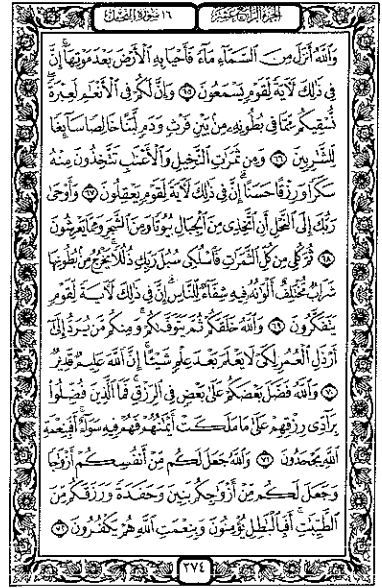 الجزء الرابع عشر
١٦ سورة النحل
وَٱللَّهُ أَنزَلَ مِنَ ٱلسَّمَآءِ مَآءً فَأَحْيَا بِهِ ٱلْأَرْضَ بَعْدَ مَوْتِهَآ إِنَّ
فِى ذَٰلِكَ لَآيَةً لِّقَوْمٍ يَسْمَعُونَ ٦٥ وَإِنَّ لَكُمْ فِى ٱلْأَنْعَٰمِ لَعِبْرَةً
نُّسْقِيكُم مِّمَّا فِى بُطُونِهِۦ مِنۢ بَيْنِ فَرْثٍ وَدَمٍ لَّبَنًا خَالِصًا سَآئِغًا
لِّلشَّٰرِبِينَ ٦٦ وَمِن ثَمَرَٰتِ ٱلنَّخِيلِ وَٱلْأَعْنَٰبِ تَتَّخِذُونَ مِنْهُ
سَكَرًا وَرِزْقًا حَسَنًا إِنَّ فِى ذَٰلِكَ لَآيَةً لِّقَوْمٍ يَعْقِلُونَ ٦٧ وَأَوْحَىٰ
رَبُّكَ إِلَى ٱلنَّحْلِ أَنِ ٱتَّخِذِى مِنَ ٱلْجِبَالِ بُيُوتًا وَمِنَ ٱلشَّجَرِ وَمِمَّا يَعْرِشُونَ
٦٨ ثُمَّ كُلِى مِن كُلِّ ٱلثَّمَرَٰتِ فَٱسْلُكِى سُبُلَ رَبِّكِ ذُلُلًا يَخْرُجُ مِنۢ بُطُونِهَا
شَرَابٌ مُّخْتَلِفٌ أَلْوَٰنُهُۥ فِيهِ شِفَآءٌ لِّلنَّاسِ إِنَّ فِى ذَٰلِكَ لَآيَةً لِّقَوْمٍ
يَتَفَكَّرُونَ ٦٩ وَٱللَّهُ خَلَقَكُمْ ثُمَّ يَتَوَفَّىٰكُمْ وَمِنكُم مَّن يُرَدُّ إِلَىٰٓ
أَرْذَلِ ٱلْعُمُرِ لِكَىْ لَا يَعْلَمَ بَعْدَ عِلْمٍ شَيْـًٔا إِنَّ ٱللَّهَ عَلِيمٌ قَدِيرٌ
٧٠ وَٱللَّهُ فَضَّلَ بَعْضَكُمْ عَلَىٰ بَعْضٍ فِى ٱلرِّزْقِ فَمَا ٱلَّذِينَ فُضِّلُوا۟
بِرَآدِّى رِزْقِهِمْ عَلَىٰ مَا مَلَكَتْ أَيْمَٰنُهُمْ فَهُمْ فِيهِ سَوَآءٌ أَفَبِنِعْمَةِ
ٱللَّهِ يَجْحَدُونَ ٧١ وَٱللَّهُ جَعَلَ لَكُم مِّنْ أَنفُسِكُمْ أَزْوَٰجًا
وَجَعَلَ لَكُم مِّنْ أَزْوَٰجِكُم بَنِينَ وَحَفَدَةً وَرَزَقَكُم مِّنَ
ٱلطَّيِّبَٰتِ أَفَبِٱلْبَٰطِلِ يُؤْمِنُونَ وَبِنِعْمَتِ ٱللَّهِ هُمْ يَكْفُرُونَ ٧٢
٢٧٤